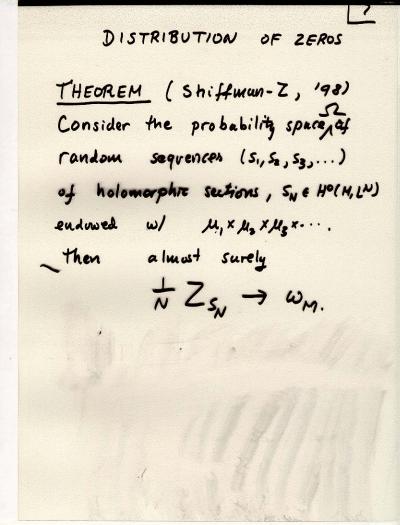 DISTRIBUTION OF ZEROS
THEOREM (Shiffman-Z, '98)
Consider the probability space Ω of
random sequences (S₁, S₂, S₃, ...)
of holomorphic sections, S_N ∈ H⁰(M, L^N)
endowed w/ μ₁ × μ₂ × μ₃ × ....
Then almost surely
1/N Z_{S_N} → ω_M.